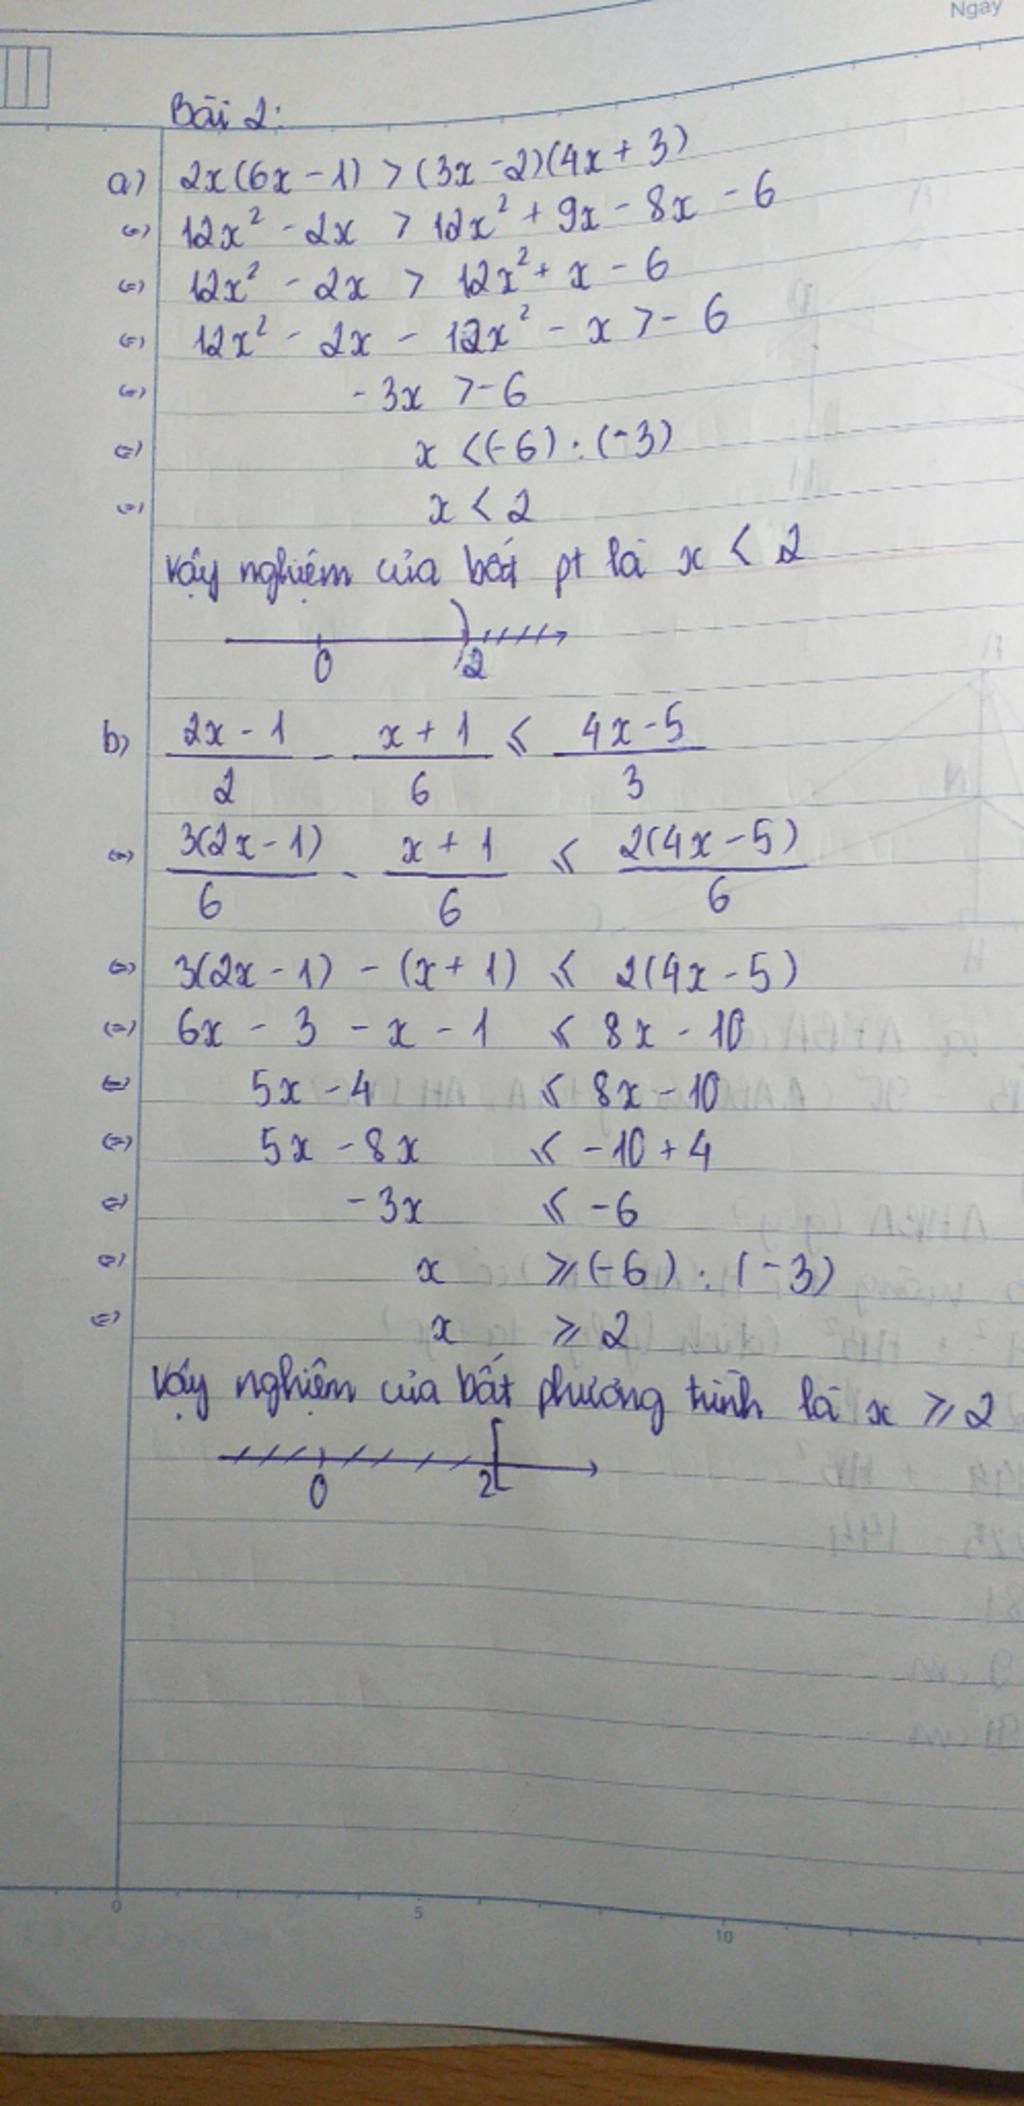 Ngày
Bài 2:
a) 2x(6x - 1) > (3x - 2)(4x + 3)
(=) 12x² - 2x > 12x² + 9x - 8x - 6
(=) 12x² - 2x > 12x² + x - 6
(=) 12x² - 2x - 12x² - x > - 6
(=) - 3x > - 6
(=) x < (-6) : (-3)
(=) x < 2
Vậy nghiệm của bất pt là x < 2
0 2
b) (2x - 1)/2 - (x + 1)/6 ⩽ (4x - 5)/3
(=) 3(2x - 1)/6 - (x + 1)/6 ⩽ 2(4x - 5)/6
(=) 3(2x - 1) - (x + 1) ⩽ 2(4x - 5)
(=) 6x - 3 - x - 1 ⩽ 8x - 10
(=) 5x - 4 ⩽ 8x - 10
(=) 5x - 8x ⩽ - 10 + 4
(=) - 3x ⩽ - 6
(=) x ⩾ (-6) : (-3)
(=) x ⩾ 2
Vậy nghiệm của bất phương trình là x ⩾ 2
0 2
0 5 10